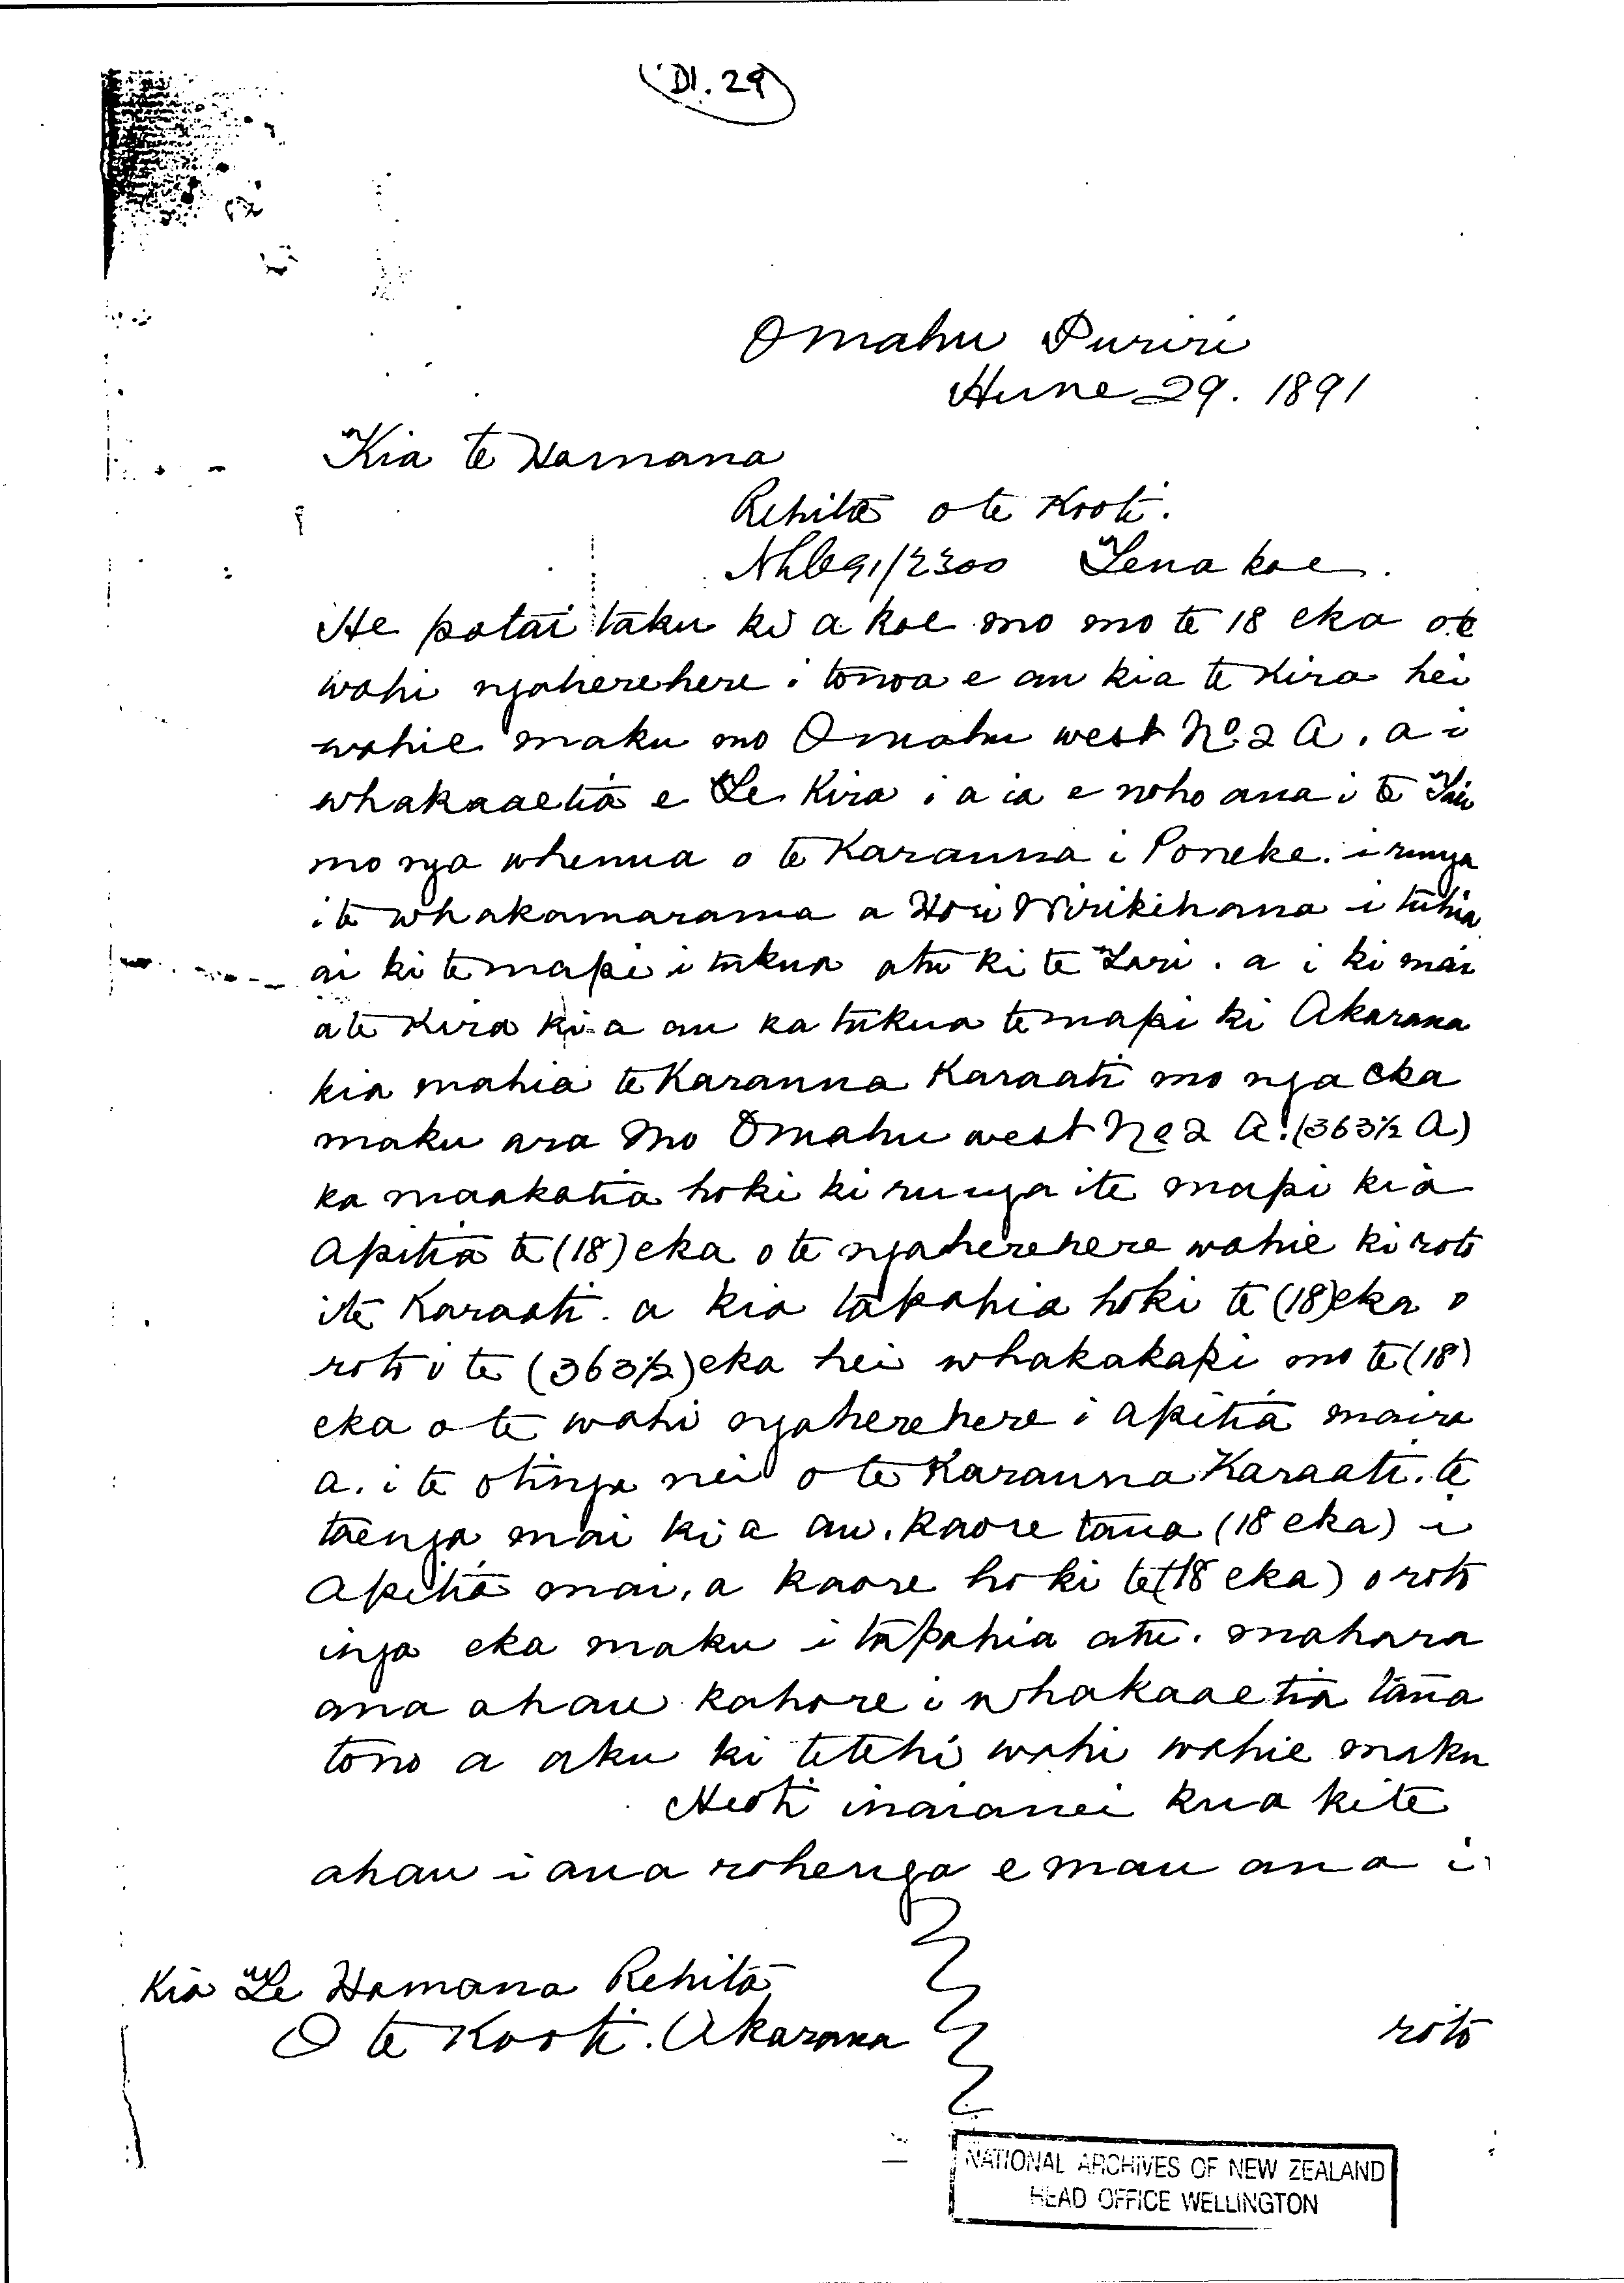 D1.29
Omahu Puriri
Hune 29. 1891
Kia te Hamana
Rehita o te Kooti.
Nlc 91/2300 Tena koe.
He patai taku ki a koe mo mo te 18 eka o te
wahi ngaherehere i tonoa e au kia te Kira hei
wahie maku mo Omahu west No 2 A. a i
whakaaetia e Te Kira i a ia e noho ana i te
mo nga whenua o te Karauna i Poneke. i runga
i te whakamarama a Hori Wirikihana i tuhia
ai ki te mapi i tukua atu ki te Tari. a i ki mai
a te Kira ki a au ka tukua te mapi ki Akarana
kia mahia te Karauna Karaati mo nga eka
maku ara mo Omahu west No 2 A. (363½ A)
ka maakatia hoki ki runga i te mapi kia
Apitia te (18) eka o te ngaherehere wahie ki roto
i te Karaati. a kia tapahia hoki te (18) eka o
roto i te (363½) eka hei whakakapi mo te (18)
eka o te wahi ngaherehere i apitia maira
a. i te otinga nei o te Karauna Karaati. te
taenga mai ki a au. kaore taua (18 eka) i
Apitia mai, a kaore hoki te (18 eka) o roto
i nga eka maku i tapahia atu. mahara
ana ahau kahore i whakaaetia taua
tono a aku ki tetehi wahi wahie maku
Heoti inaianei kua kite
ahau i aua rohenga e mau ana i
Kia Te Hamana Rehita
O te Kooti. Akarana
roto
NATIONAL ARCHIVES OF NEW ZEALAND
HEAD OFFICE WELLINGTON